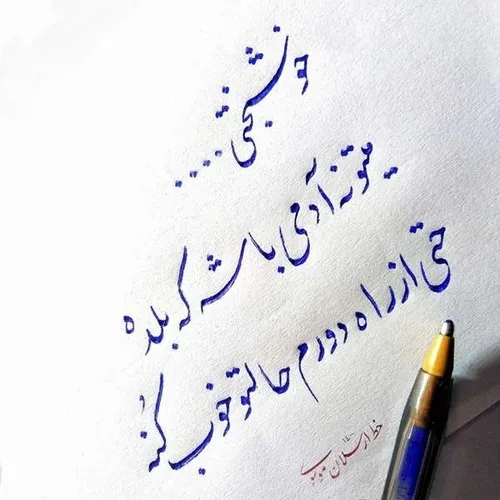 خوشبختی ....
میتونه آدمی باشه که بلده
حتی از راه دورم حالتو خوب کنه
خط ارسلان